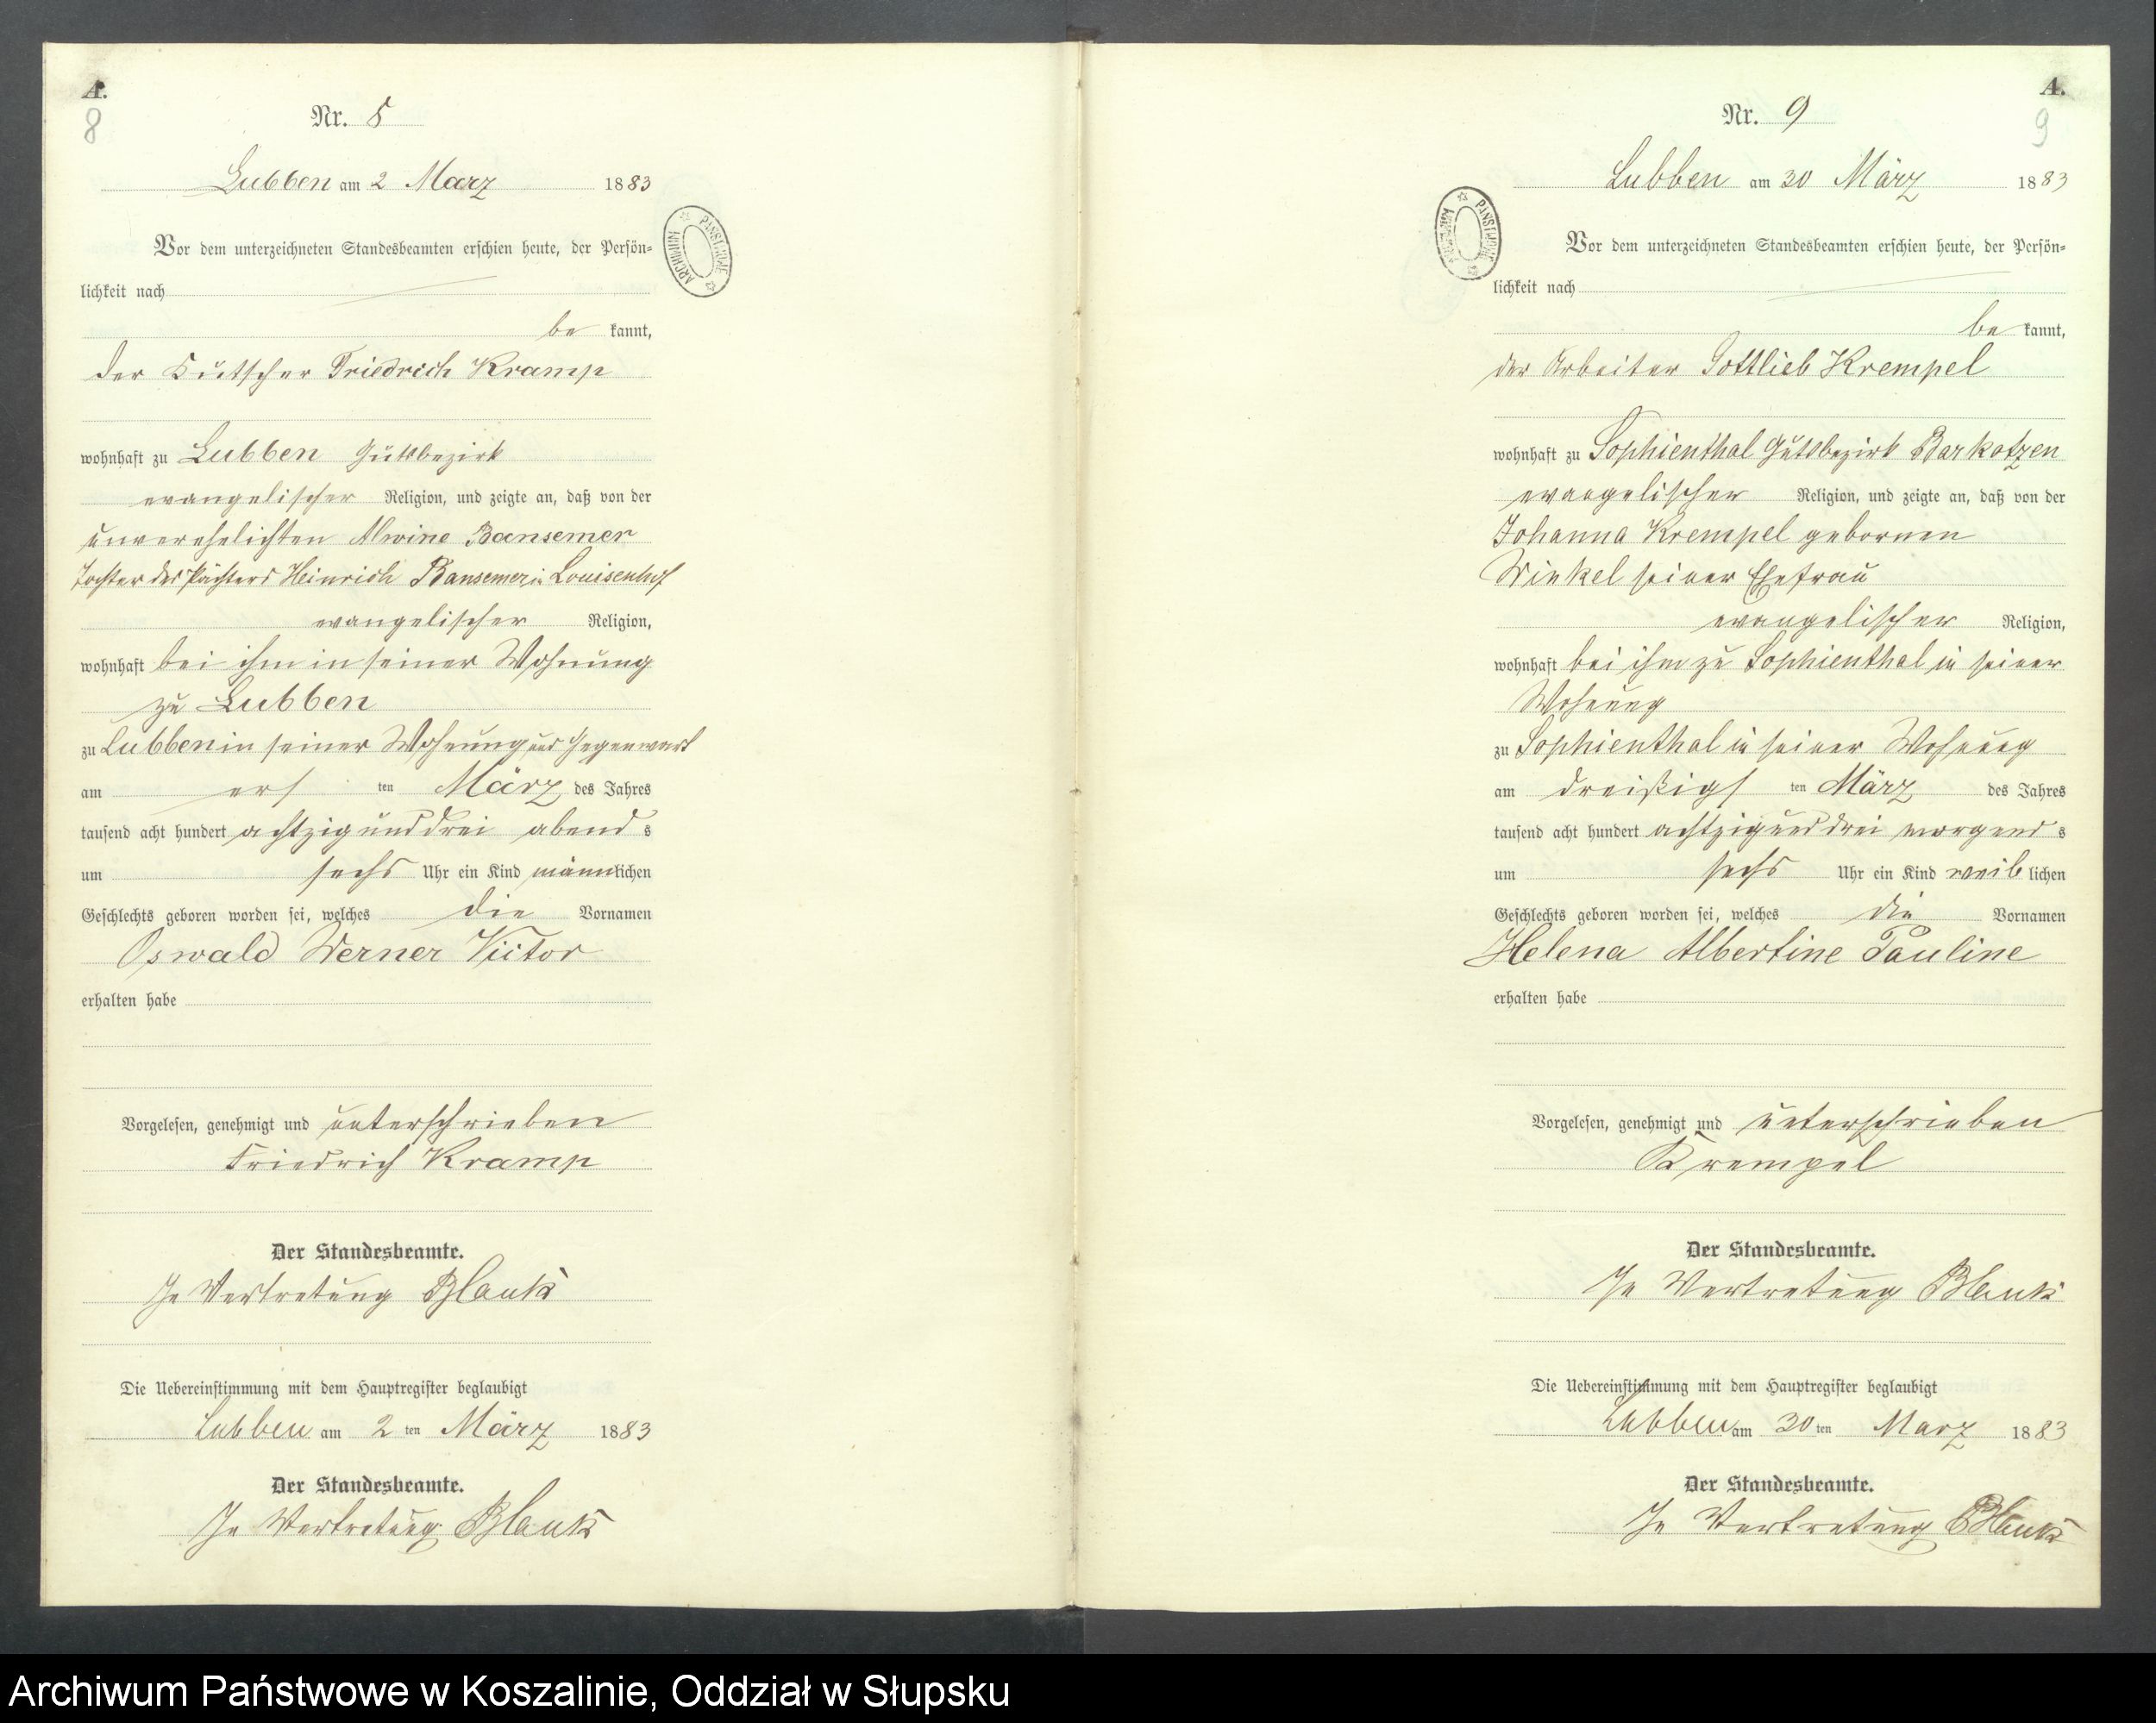 A.
8
Nr. 8
Lubben am 2 Marz 1883
Vor dem unterzeichneten Standesbeamten erschien heute, der Persön-
lichkeit nach
be kannt,
der Kutscher Friedrich Kramp
wohnhaft zu Lubben Gutsbezirk
evangelischer Religion, und zeigte an, daß von der
unverehelichten Alwine Bansemer
Tochter des Pächters Heinrich Bansemer in Louisenhof
evangelischer Religion,
wohnhaft bei ihm in seiner Wohnung
zu Lubben
zu Lubben in seiner Wohnung und Gegenwart
am ers ten März des Jahres
tausend acht hundert achtzig und drei abend s
um sechs Uhr ein Kind männlichen
Geschlechts geboren worden sei, welches die Vornamen
Oswald Werner Victor
erhalten habe
Vorgelesen, genehmigt und unterschrieben
Friedrich Kramp
Der Standesbeamte.
In Vertretung Blank
Die Uebereinstimmung mit dem Hauptregister beglaubigt
Lubben am 2 ten März 1883
Der Standesbeamte.
In Vertretung Blank
ARCHIWUM PAŃSTWOWE
A.
9
Nr. 9
Lubben am 30 März 1883
Vor dem unterzeichneten Standesbeamten erschien heute, der Persön-
lichkeit nach
be kannt,
der Arbeiter Gottlieb Krempel
wohnhaft zu Sophienthal Gutsbezirk Barkotzen
evangelischer Religion, und zeigte an, daß von der
Johanna Krempel gebornen
Winkel seiner Ehefrau
evangelischer Religion,
wohnhaft bei ihm zu Sophienthal in seiner
Wohnung
zu Sophienthal in seiner Wohnung
am dreißigs ten März des Jahres
tausend acht hundert achtzig und drei morgend s
um sechs Uhr ein Kind weib lichen
Geschlechts geboren worden sei, welches die Vornamen
Helena Albertine Pauline
erhalten habe
Vorgelesen, genehmigt und unterschrieben
Krempel
Der Standesbeamte.
In Vertretung Blank
Die Uebereinstimmung mit dem Hauptregister beglaubigt
Lubben am 30 ten Marz 1883
Der Standesbeamte.
In Vertretung Blank
ARCHIWUM PAŃSTWOWE
Archiwum Państwowe w Koszalinie, Oddział w Słupsku